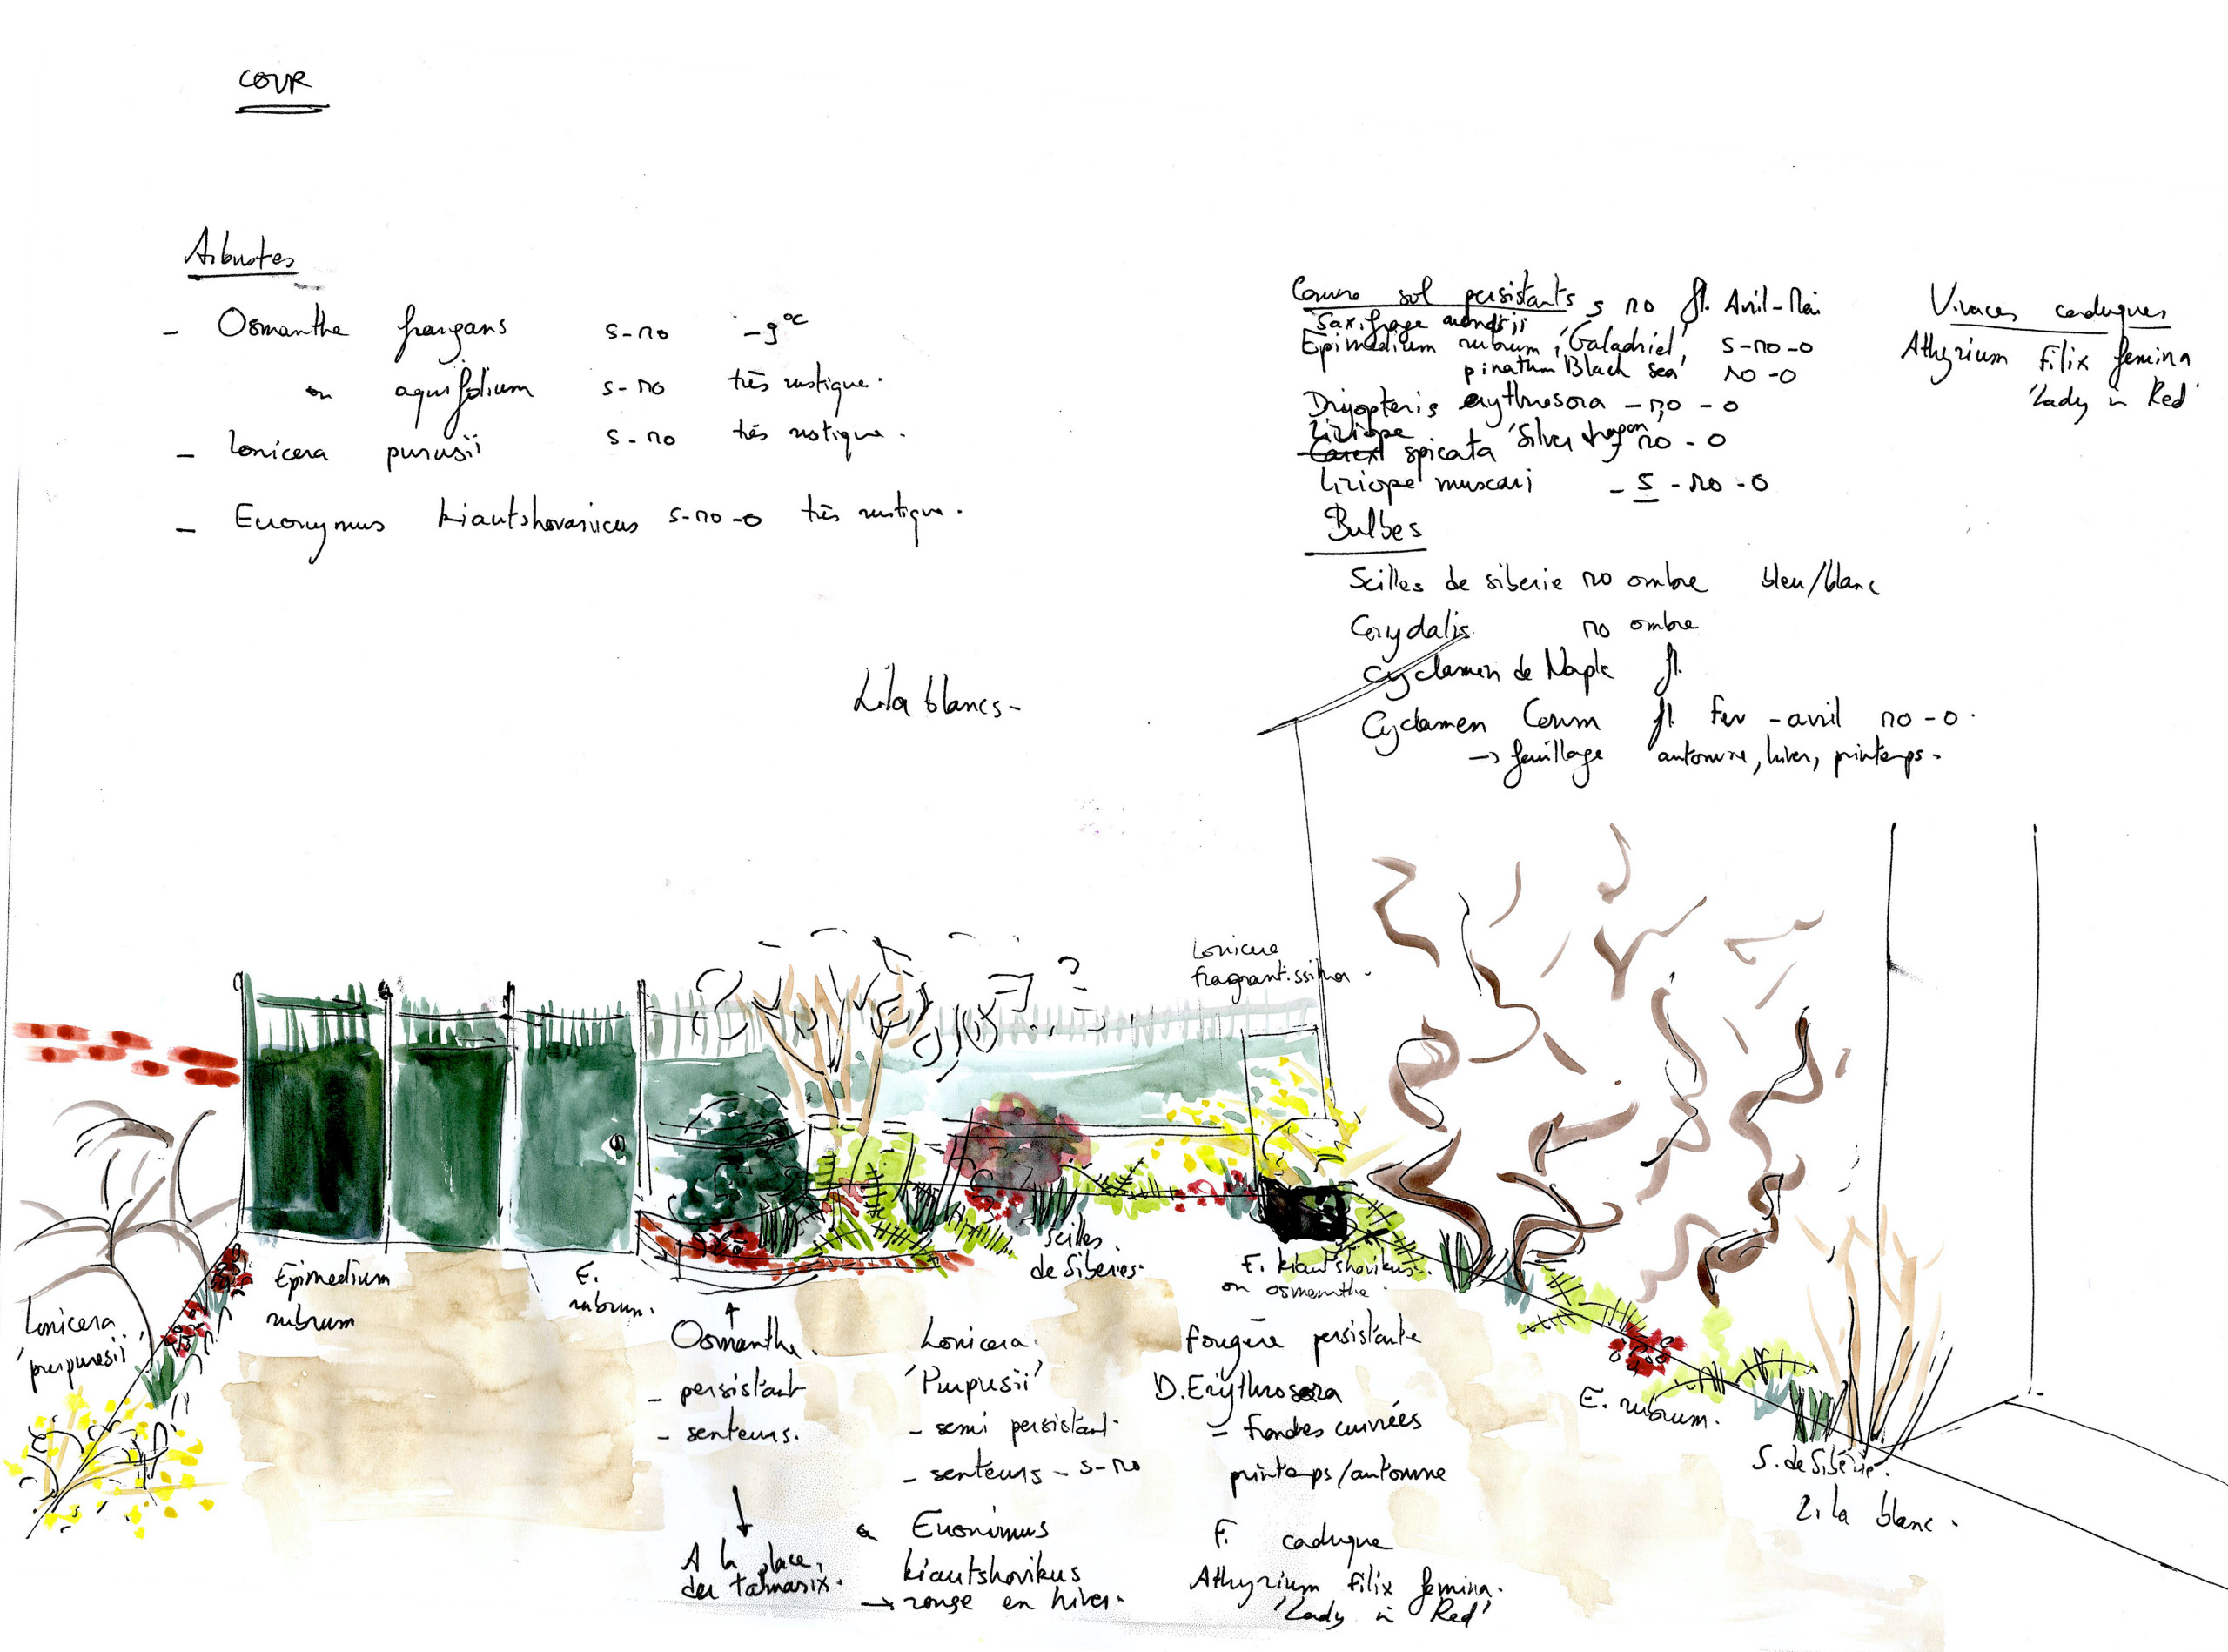 COUR
Arbustes
- Osmanthe fragrans s-no -9°C
ou aquifolium s-no très rustique.
- Lonicera purusii s-no très rustique.
- Euonymus kiautshovanicus s-no-o très rustique.
Couvre sol persistants s no fl. Avril-Mai
Saxifrage arendsii
Epimedium rubrum, 'Galadriel' s-no-o
pinatum 'Black sea' no-o
Dryopteris erythrosora - no - o
Liriope
Carex spicata 'Silver dragon' no - o
Liriope muscari - s - no - o
Bulbes
Scilles de siberie no ombre bleu/blanc
Corydalis no ombre
Cyclamen de Naple fl.
Cyclamen Coum fl fev - avril no-o.
→ feuillage automne, hiver, printemps.
Vivaces caduques
Athyrium filix femina
'Lady in Red'
Lila blancs-
Lonicera
fragrantissima.
Lonicera
'purpuresii'
Epimedium
rubrum
E.
rubrum.
Scilles
de Siberies.
E. kiautshovikus.
ou osmanthe.
Osmanthe.
- persistant
- senteurs.
A la place,
du tamarix.
Lonicera.
'Purpusii'
- semi persistant.
- senteurs - s-no
Euonimus
kiautshovikus
→ rouge en hiver.
fougère persistante
D. Erythrosora
- frondes cuivrées
printemps/automne
F. caduque
Athyrium filix femina.
'Lady in Red'
E. rubrum.
S. de Sibérie.
Lila blanc.